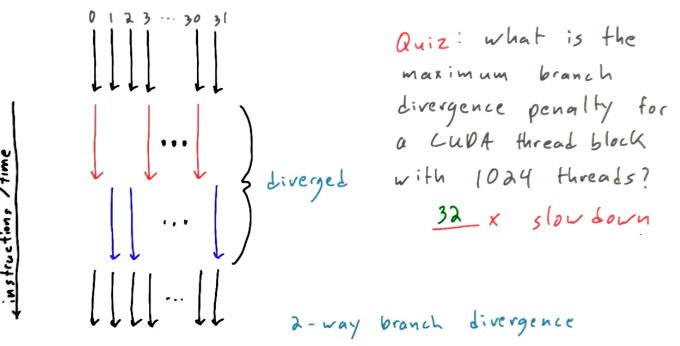 0 1 2 3 ... 30 31
instructions/time
...
...
...
diverged
2-way branch divergence
Quiz: what is the
maximum branch
divergence penalty for
a CUDA thread block
with 1024 threads?
32 x slowdown